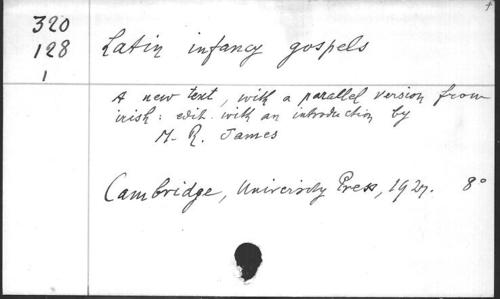 320
128
1
Latin infancy gospels
A new text, with a parallel version from
irish: edit. with an introduction by
M. R. James
Cambridge, University Press, 1927. 8°